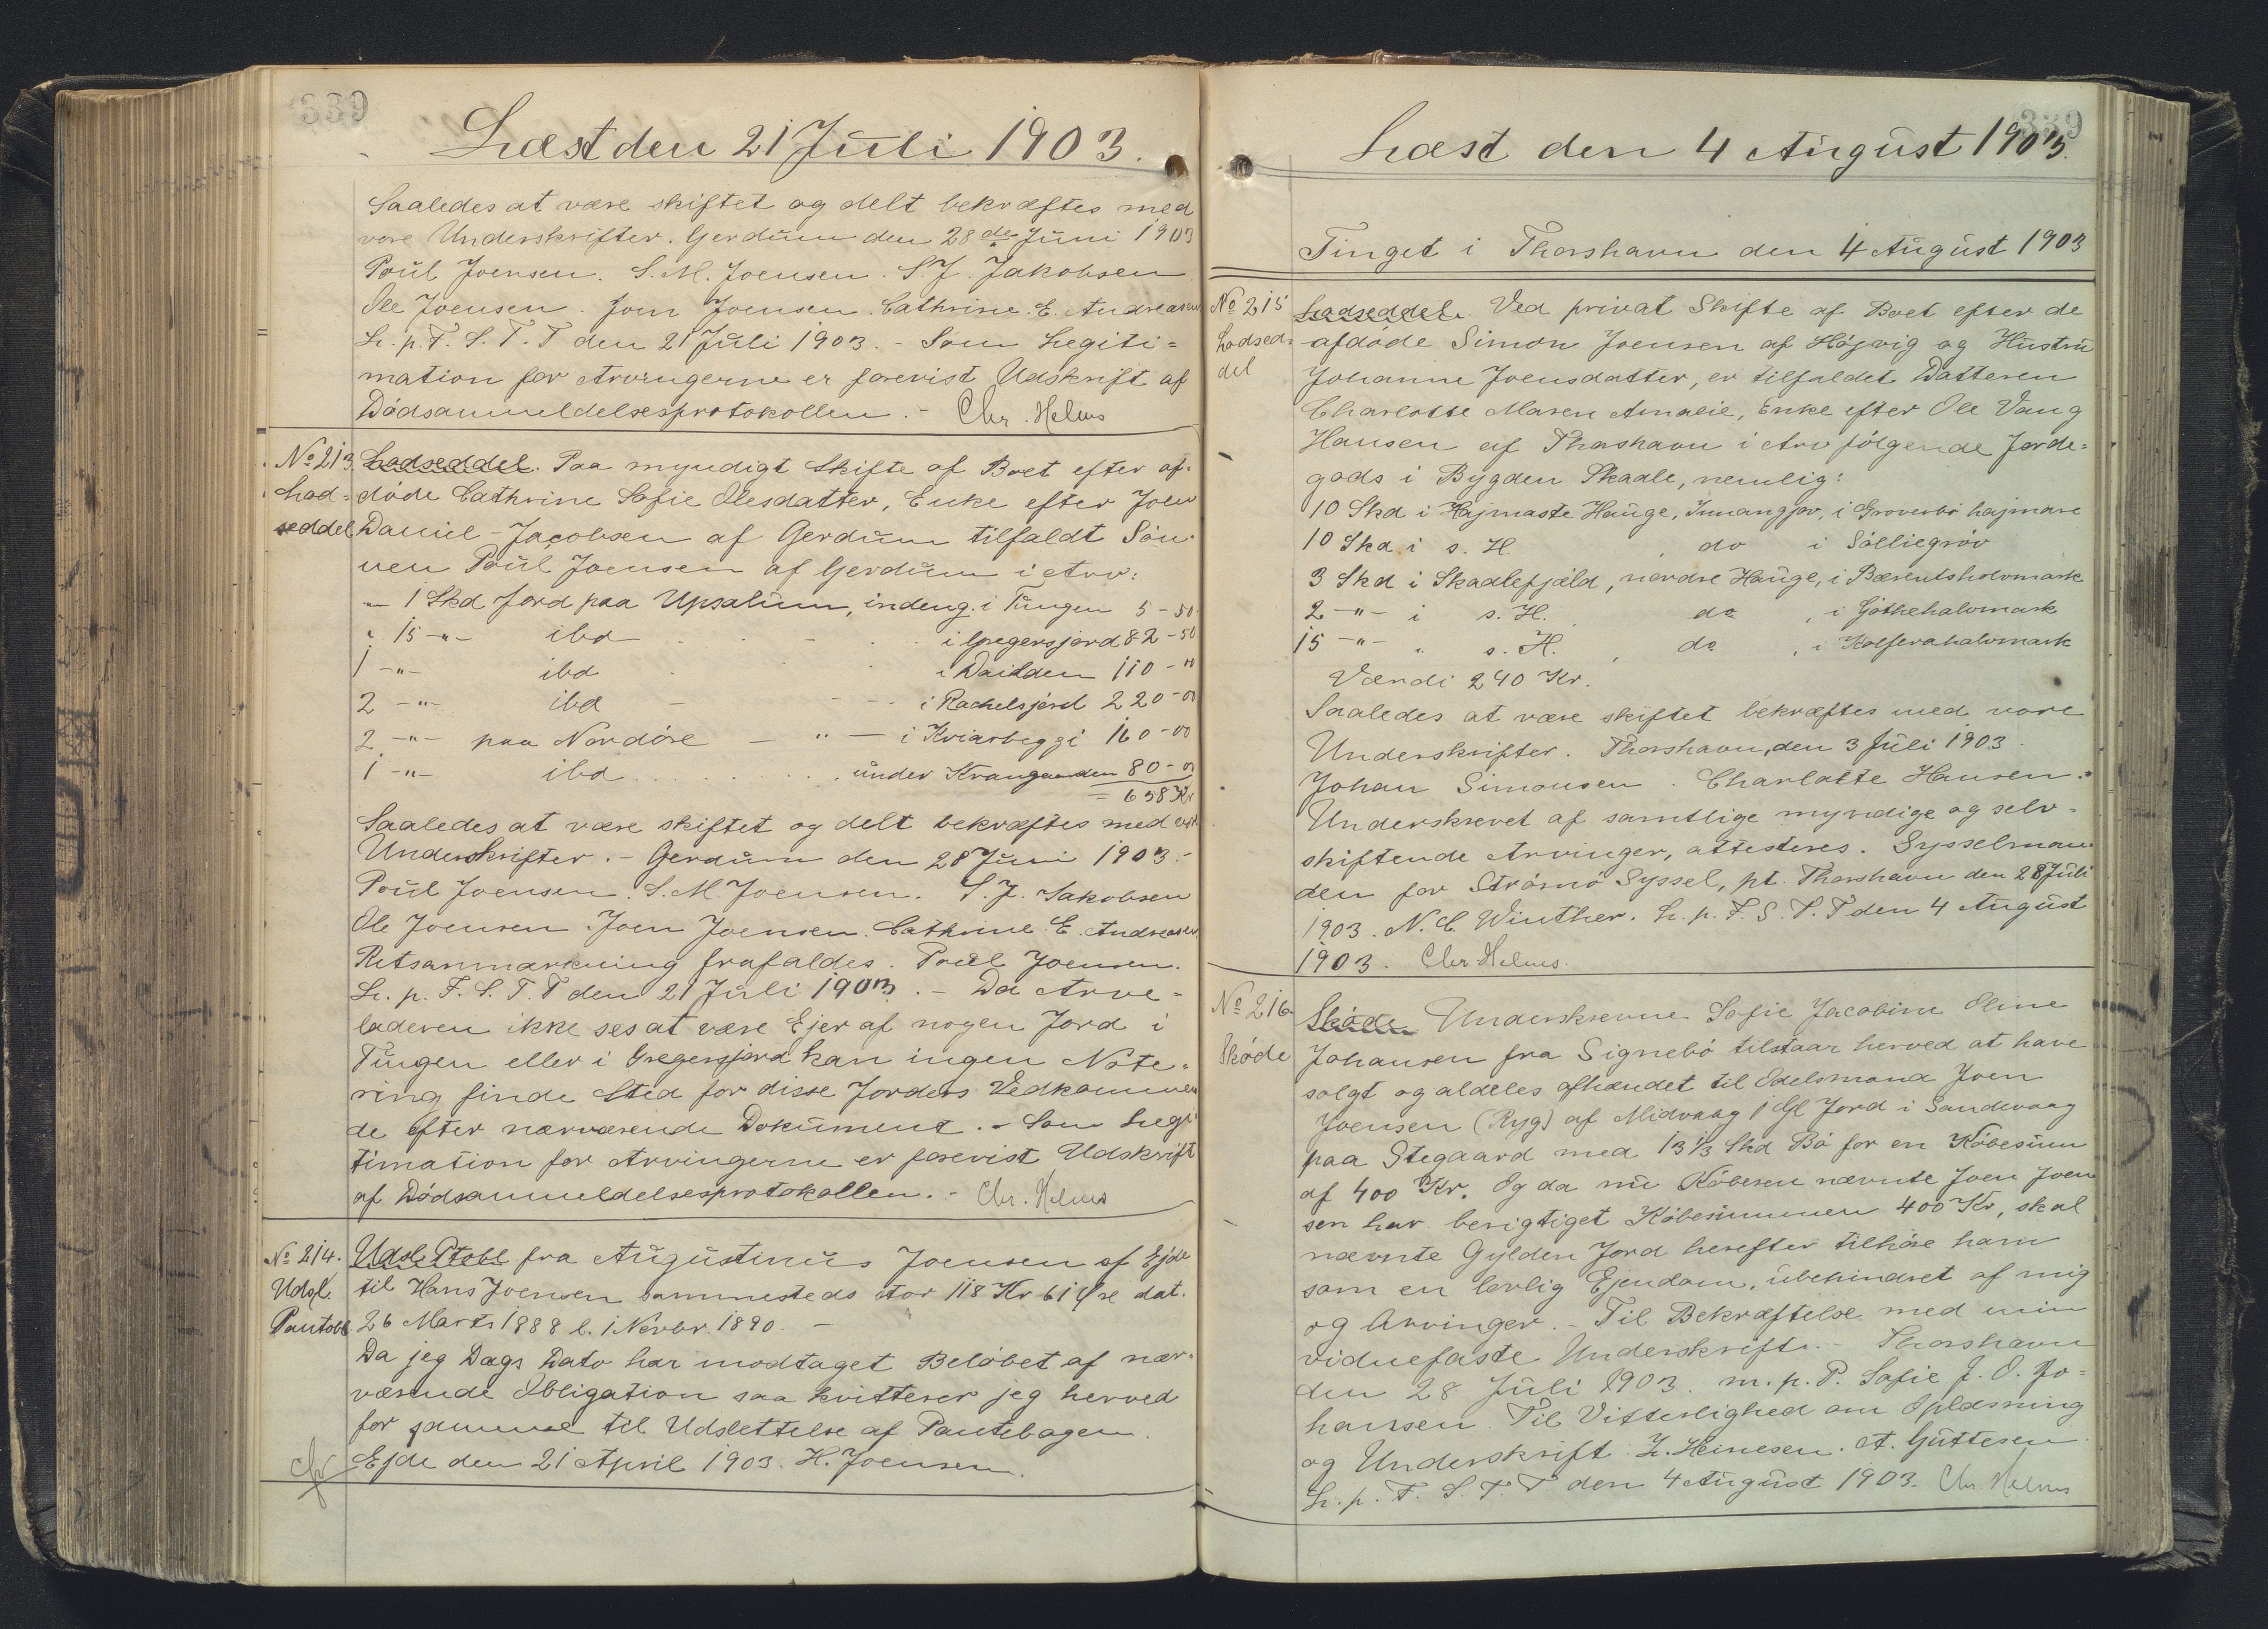 339
Læst den 21 Juli 1903.
Saaledes at være skiftet og delt bekræftes med
vore Underskrifter. Gerdum den 28de Juni 1903
Poul Joensen. S. M. Joensen. S. J. Jakobsen
Ole Joensen. Joen Joensen. Cathrine. E. Andreasen
L. p. F. S. T. T den 21 Juli 1903. - Som Legiti=
mation for Arvingerne er forevist Udskrift af
Dödsanmeldelsesprotokollen. - Chr. Helms
No 213.
Lod=
seddel
Lodseddel. Paa myndigt Skifte af Boet efter af=
döde Cathrine Sofie Olesdatter, Enke efter Joen
Daniel Jacobsen af Gerdum tilfaldt Sön=
nen Poul Joensen af Gerdum i Arv:
1 Skd Jord paa Upsalum, indeng. i Tungen 5-50
15 -"- ibd i Gregersjord 82-50
1 -"- ibd i Daidden 110-"
2 -"- ibd - i Rachelsjord 220-00
2 -"- paa Nordöre - " - i Kviarbeggi 160-00
1 -"- ibd under Krangaanden 80-00
= 658 Kr
Saaledes at være skiftet og delt bekræftes med
Underskrifter. - Gerdum den 28 Juni 1903. -
Poul Joensen. S. M Joensen. S. J. Jakobsen
Ole Joensen. Joen Joensen. Cathrine E. Andreasen.
Retsanmærkning frafaldes. Poul Joensen.
L. p. F. S. T. T den 21 Juli 1903. - Da Arve=
laderen ikke ses at være Ejer af nogen Jord i
Tungen eller i Gregersjord kan ingen Note=
ring finde Sted for disse Jorders Vedkommen
de efter nærværende Dokument. - Som Legi
timation for Arvingerne er forevist Udskrift
af Dödsanmeldelsesprotokollen. - Chr. Helms
No 214.
Udsl.
Pantobl.
Udsl. Ptobl. fra Augustinus Joensen af Ejde
til Hans Joensen sammesteds stor 118 Kr 61 Øre dat.
26 Marts 1888 l. 1 Novbr. 1890. -
Da jeg Dags Dato har modtaget Belöbet af nær=
værende Obligation saa kvitterer jeg herved
for samme til Udslettelse af Pantebogen.
Ejde den 21 April 1903. H. Joensen.
339
Læst den 4 August 1903.
Tinget i Thorshavn den 4 August 1903
No 215
Lodsed=
del
Lodseddel. Ved privat Skifte af Boet efter de
afdöde Simon Joensen af Höjvig og Hustru
Johanne Joensdatter, er tilfaldet Datteren
Charlotte Maren Amalie, Enke efter Ole Vang
Hansen af Thorshavn i Arv fölgende Jorde=
gods i Bygden Skaale, nemlig:
10 Skd i Hajmaste Hauge, Innangjor, i Groverbö hajmare
10 Skd i s. H. , do i Sölliegröv
3 Skd i Skaalefjæld, nordre Hauge, i Bærentsholvmark
2 -"- i s. H. , do , i Götkehalvmark
15 -"- " s. H. , do , i Kolferahalvmark
Værdi 240 Kr.
Saaledes at være skiftet bekræftes med vore
Underskrifter. Thorshavn, den 3 Juli 1903.
Johan Simonsen. Charlotte Hansen.
Underskrevet af samtlige myndige og selv=
skiftende Arvinger, attesteres. Sysselman
den for Strömö Syssel, pt. Thorshavn den 28 Juli
1903. N. C. Winther. L. p. F. S. T. T den 4 August
1903. Chr Helms.
No 216
Sköde
Sköde Underskrevne Sofie Jacobine Oline
Johansen fra Signebö tilstaar herved at have
solgt og aldeles afhændet til Odelsmand Joen
Joensen (Ryg) af Midvaag 1 Gl Jord i Sandevaag
paa Stegaard med 13 1/3 Skd Bö for en Köbesum
af 400 Kr. Og da nu Köberen nævnte Joen Joen
sen har berigtiget Köbesummen 400 Kr, skal
nævnte Gylden Jord herefter tilhöre ham
som en lovlig Ejendom, ubehindret af mig
og Arvinger. - Til Bekræftelse med min
vidnefaste Underskrift. - Thorshavn
den 28 Juli 1903. m. p. P. Sofie J. O. Jo=
hansen. Til Vitterlighed om Oplæsning
og Underskrift: Z. Heinesen. A. Guttesen
L. p. F. S. T. T den 4 August 1903. Chr Helms